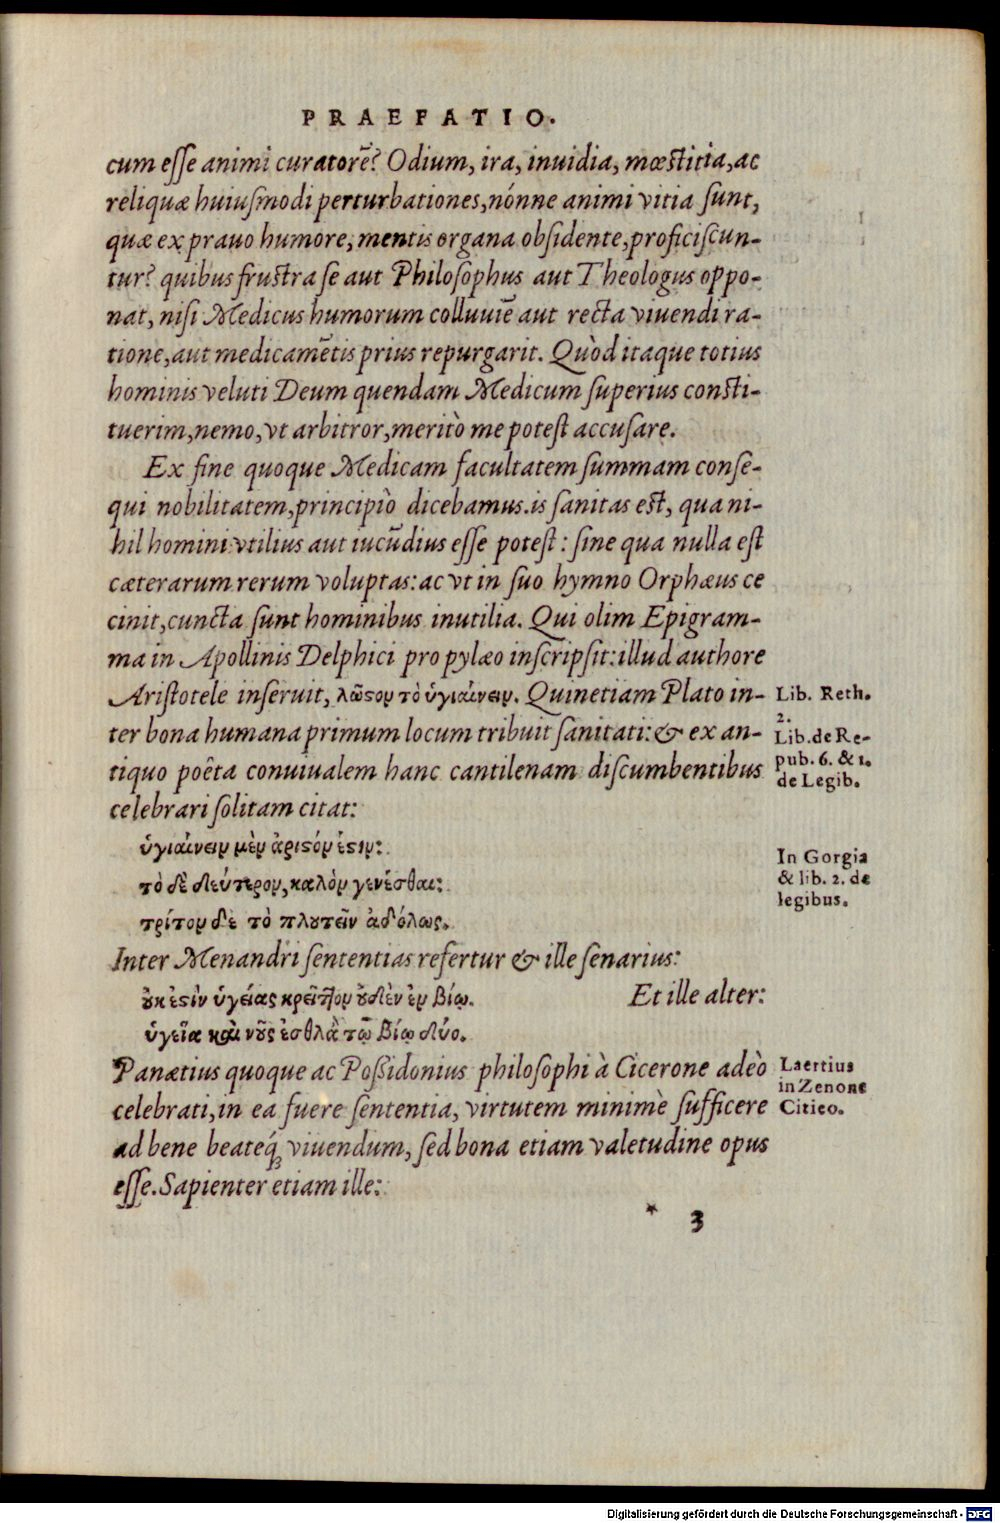 PRAEFATIO.
cum esse animi curatorẽ? Odium, ira, inuidia, mœstitia, ac
reliquæ huiusmodi perturbationes, nónne animi vitia sunt,
quæ ex prauo humore, mentis organa obsidente, proficiscun-
tur? quibus frustra se aut Philosophus aut Theologus oppo-
nat, nisi Medicus humorum colluuiẽ aut recta viuendi ra-
tione, aut medicamẽtis prius repurgarit. Quòd itaque totius
hominis veluti Deum quendam Medicum superius consti-
tuerim, nemo, vt arbitror, meritò me potest accusare.
Ex fine quoque Medicam facultatem summam conse-
qui nobilitatem, principiò dicebamus. is sanitas est, qua ni-
hil homini vtilius aut iucũdius esse potest: sine qua nulla est
cæterarum rerum voluptas: ac vt in suo hymno Orphæus ce
cinit, cuncta sunt hominibus inutilia. Qui olim Epigram-
ma in Apollinis Delphici propylæo inscripsit: illud authore
Aristotele inseruit, λῶϛον τὸ ὑγιαίνειν. Quinetiam Plato in-
Lib. Reth.
2.
ter bona humana primum locum tribuit sanitati: & ex an-
Lib. de Re-
tiquo poêta conuiualem hanc cantilenam discumbentibus
pub. 6. & 1.
de Legib.
celebrari solitam citat:
ὑγιαίνειν μὲν ἀριϛόν ἐϛιν:
In Gorgia
τὸ δὲ δεύτερον, καλὸν γενέσθαι:
& lib. 2. de
legibus.
τρίτον δε τὸ πλουτεῖν ἀδόλως.
Inter Menandri sententias refertur & ille senarius:
ȣκ ἐϛὶν ὑγείας κρεῖττον ȣδὲν ἐν βίῳ. Et ille alter:
ὑγεῖα καὶ νοῦς ἐσθλὰ τῷ βίῳ δύο.
Panætius quoque ac Possidonius philosophi à Cicerone adèo
Laertius
in Zenone
celebrati, in ea fuere sententia, virtutem minimè sufficere
Citieo.
ad bene beateq́ꝫ viuendum, sed bona etiam valetudine opus
esse. Sapienter etiam ille:
* 3
Digitalisierung gefördert durch die Deutsche Forschungsgemeinschaft - DFG